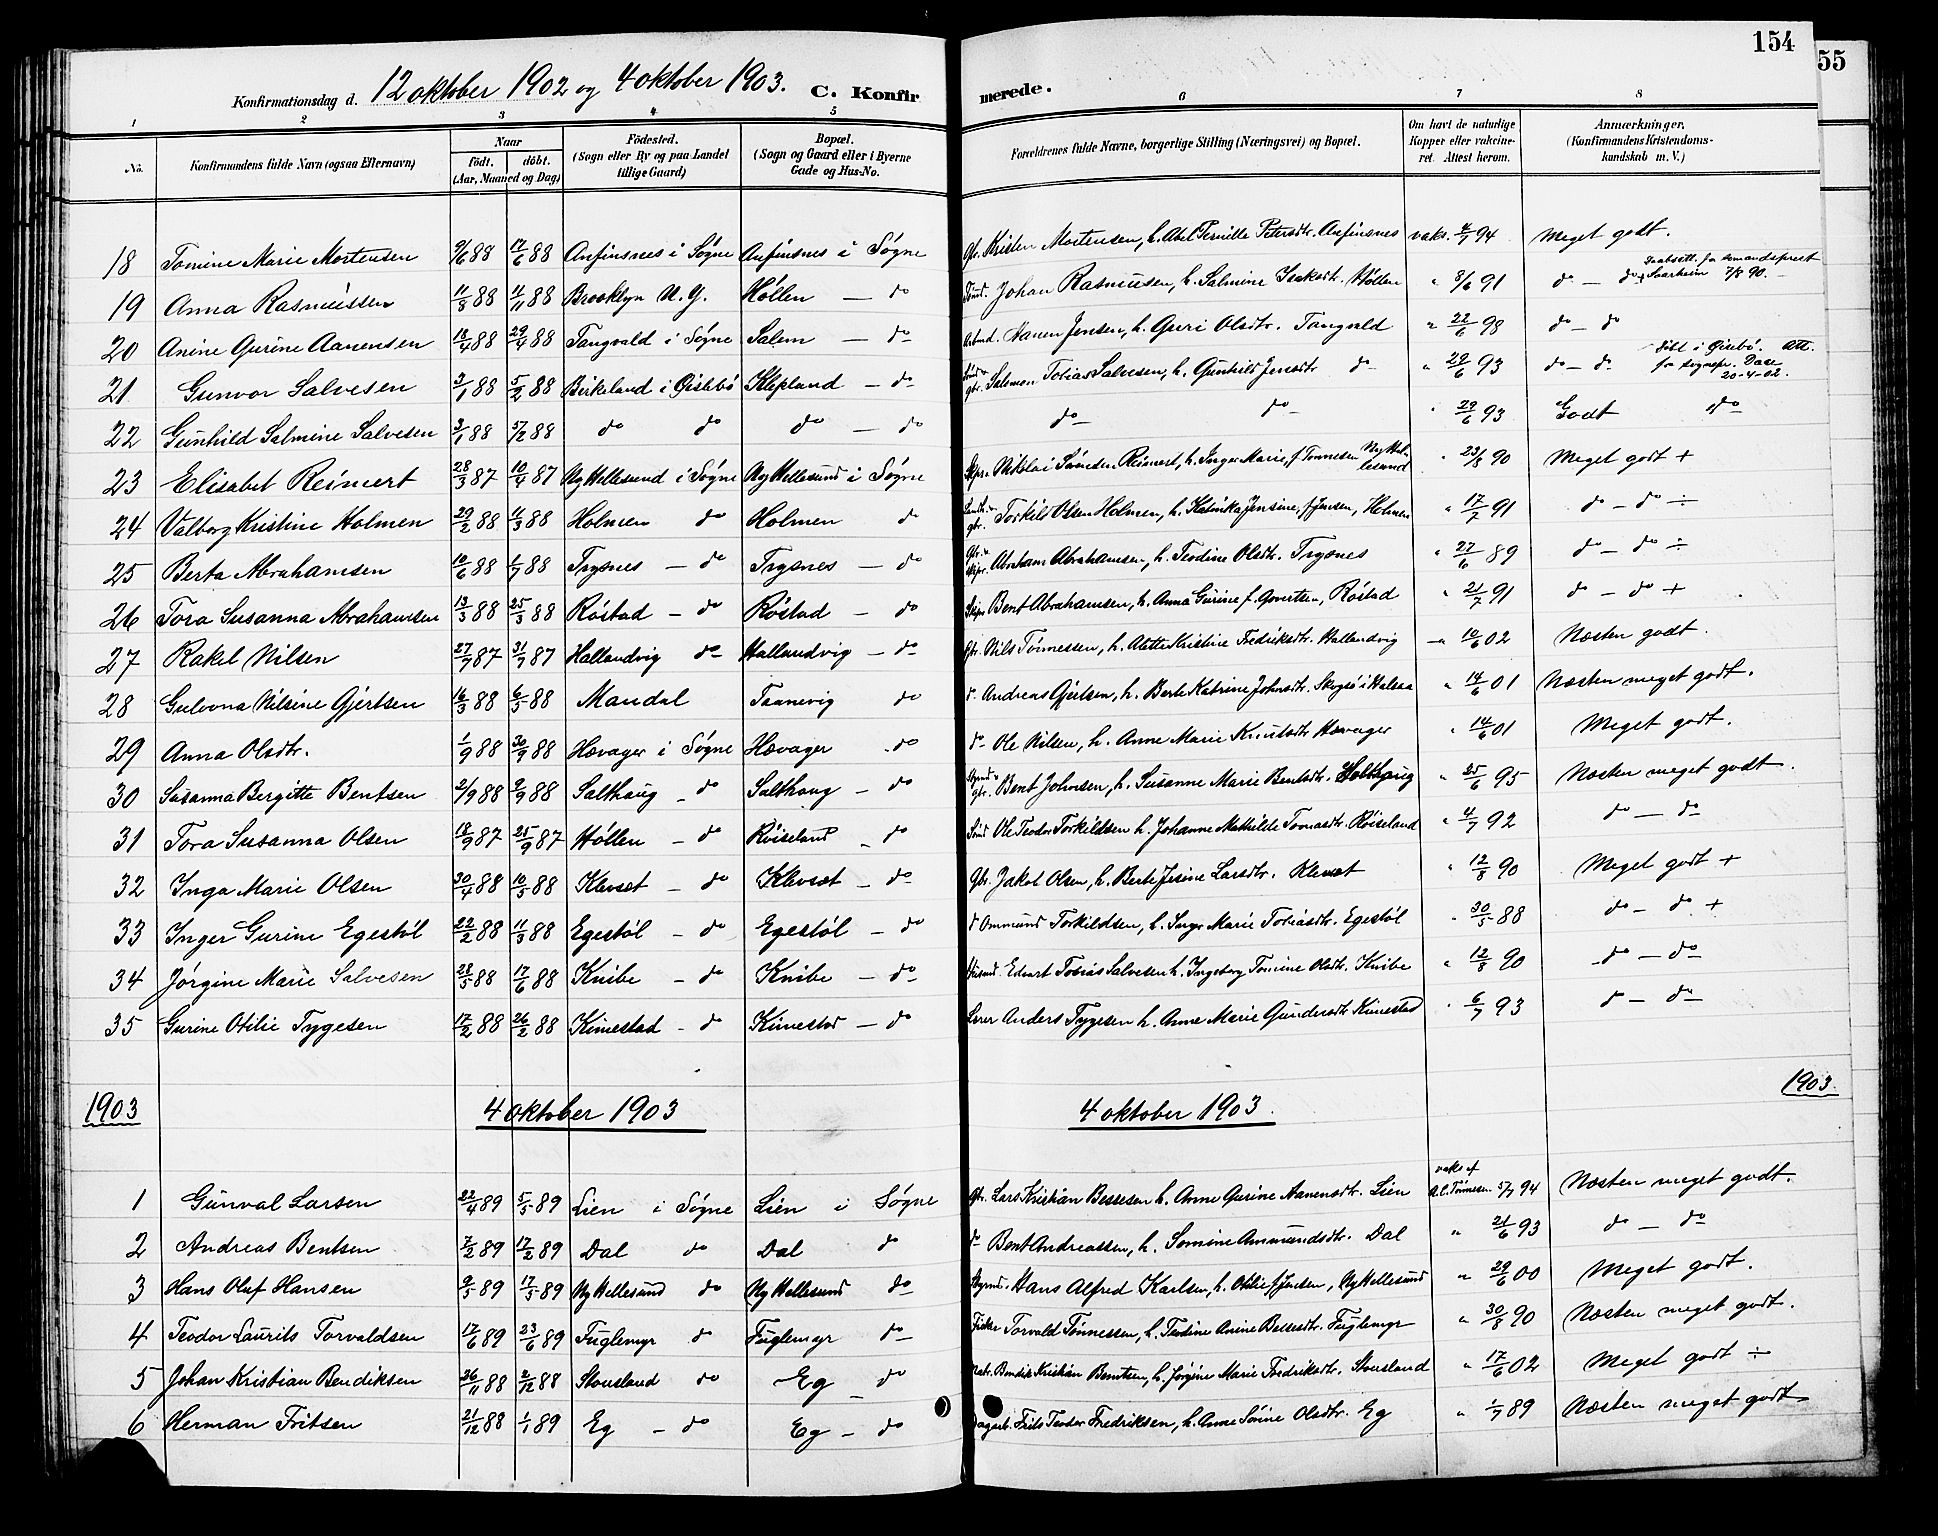 154
55
Konfirmationsdag d. 12 oktober 1902 og 4 oktober 1903. C. Konfirmerede.
1 2 3 4 5 6 7 8
No. Konfirmandens fulde Navn (ogsaa Efternavn) Naar födt. döbt. (Aar, Maaned og Dag) Födested. (Sogn eller By og paa Landet tillige Gaard) Bopæl. (Sogn og Gaard eller i Byerne Gade og Hus-No. Forældrenes fulde Navne, borgerlige Stilling (Næringsvei) og Bopæl. Om havt de naturlige Kopper eller vakcineret. Attest herom. Anmærkninger. (Konfirmandens Kristendomskundskab m. V.)
18 Tomine Marie Mortensen 9/6 88 17/6 88 Anfinsnes i Søgne Anfinsnes i Søgne Kristen Mortensen, h. Abel Pernille Petersdtr. Anfinsnes vaks. 4/7 94 Meget godt.
19 Anna Rasmussen 11/8 88 11/11 88 Brooklyn N.Y. Høllen – do Johan Rasmussen, h. Salmine Isaksdtr. Høllen " 8/6 91 do – do 7/8 90
20 Anine Gurine Aanensen 18/4 88 29/4 88 Tangvald i Søgne Salem – do Aanen Jensen, h. Guri Olsdtr. Tangvald " 22/6 98 do – do
21 Gunvor Salvesen 3/1 88 5/2 88 Birkeland i Øislebø Klepland – do Salomon Tobias Salvesen, h. Gunhild Jensdtr do " 29/6 93 do – do døbt i Øislebø. Att. fra sognepr. Daae 20-4-02.
22 Gunhild Salmine Salvesen 3/1 88 5/2 88 do do do – do do do " 29/6 93 Godt do
23 Elisabet Reimert 28/3 87 10/4 87 Ny Hellesund i Søgne Ny Hellesund i Søgne Skpr. Nikolai Svendsen Reimert, h. Inger Marie, f. Tønnesen Ny Hellesund " 23/8 90 Meget godt +
24 Valborg Kristine Holmen 29/2 88 11/3 88 Holmen do Holmen do Torkild Olsen Holmen, h. Katinka Jensine, f Jensen, Holmen " 17/7 91 do – do ÷
25 Berta Abrahamsen 10/6 88 1/7 88 Trysnes – do Trysnes – do Abraham Abrahamsen, h. Teodine Olsdtr. Trysnes " 27/6 89 do – do ÷
26 Tora Susanna Abrahamsen 13/3 88 25/3 88 Røstad – do Røstad – do Skpr Bent Abrahamsen, h. Anna Gurine f. Govertsen, Røstad " 21/7 91 do – do +
27 Rakel Nilsen 27/7 87 31/7 87 Hallandvig do Hallandvig – do Gbr. Nils Tønnessen, h. Alette Kristine Fredriksdtr. Hallandvig " 10/6 02 Næsten godt.
28 Gulovna Nilsine Gjertsen 16/3 88 6/5 88 Mandal Taanevig do d. Andreas Gjertsen, h. Berte Katrine Johnsdtr. Skogsø i Halsaa " 14/6 01 Næsten meget godt.
29 Anna Olsdtr. 1/9 88 30/9 88 Hævager i Søgne Hævager do do Ole Nilsen, h. Anne Marie Knutsdtr Hævager " 14/6 01 Meget godt.
30 Susanna Bergitte Bentsen 2/9 88 9/9 88 Salthaug – do Salthaug – do Bent Johnsen, h. Susanne Marie Bentsdtr. Salthaug " 25/6 95 Næsten meget godt.
31 Tora Susanna Olsen 18/9 87 25/9 87 Høllen – do Røiseland – do Ole Teodor Torkildsen h. Johanne Mathilde Tomasdtr. Røiseland " 4/7 92 do – do
32 Inga Marie Olsen 30/4 88 10/5 88 Klevset – do Klevset – do Gbr. Jakob Olsen, h. Berte Jesine Larsdtr. Klevset " 12/8 90 Meget godt +
33 Inger Gurine Egestøl 22/2 88 11/3 88 Egestøl – do Egestøl – do d Ommund Torkildsen, h. Inger Marie Tobiasdtr. Egestøl " 30/5 88 do – do +
34 Jørgine Marie Salvesen 28/5 88 17/6 88 Knibe – do Knibe – do Edvart Tobias Salvesen h. Ingeborg Tomine Olsdtr. Knibe " 12/8 90 do – do
35 Gurine Otilie Tygesen 17/2 88 26/2 88 Kimestad – do Kimestad – do Lærer Anders Tygesen h. Anne Marie Gundersdtr Kimestad " 6/7 93 do – do
1903 4 oktober 1903 4 oktober 1903. 1903.
1 Gunval Larsen 22/4 89 5/5 89 Lien i Søgne Lien i Søgne Gbr. Lars Kristian Bessesen h. Anne Gurine Aanensdtr. Lien vaks af A.C. Tønnesen. 5/7 94 Næsten meget godt.
2 Andreas Bentsen 7/2 89 17/2 89 Dal do Dal do do Bent Andreassen, h. Somine Ammundsdtr. Dal " 21/6 93 do – do
3 Hans Oluf Hansen 9/5 89 17/5 89 Ny Hellesund do Ny Hellesund do Hans Alfred Karlsen, h. Otilie f Jensen, Ny Hellesund " 29/6 00 Meget godt.
4 Teodor Laurits Torvaldsen 17/6 89 23/6 89 Fuglemyr do Fuglemyr do Fisker Torvald Tønnessen, h. Teodine Anine Bessesdtr. Fuglemyr " 30/8 90 Næsten meget godt.
5 Johan Kristian Bendiksen 26/11 88 2/12 88 Stousland do Eg – do Bendik Kristian Berntsen, h. Jørgine Marie Fredriksdtr. Stousland " 17/6 02 Meget godt ÷
6 Herman Fritsen 21/12 88 1/1 89 Eg – do Eg – do Dagarb. Frits Teodor Fredriksen, h. Anne Sørine Olsdtr. Eg " 1/7 89 Næsten meget godt